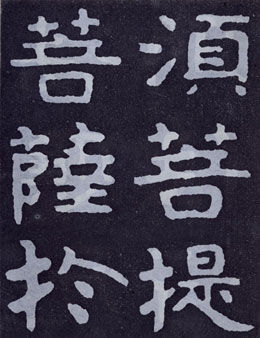 湏菩提
菩薩於